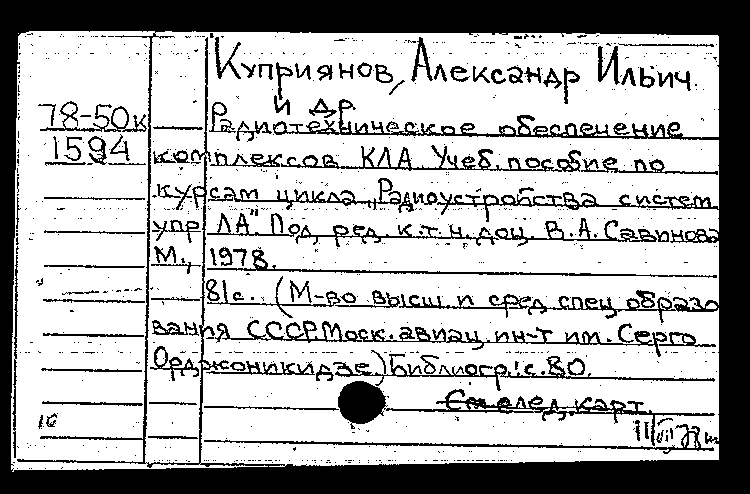 Куприянов, Александр Ильич
и др.
78-50к
1594
Радиотехническое обеспечение
комплексов КЛА. Учеб. пособие по
курсам цикла „Радиоустройства систем
упр ЛА". Под ред. к.т.н. доц. В.А. Савинова
М., 1978.
81с. (М-во высш и сред спец образо
вания СССР. Моск. авиац. ин-т им. Серго
Орджоникидзе.) Библиогр.: с. 80.
См след. карт.
16
11/VII 78